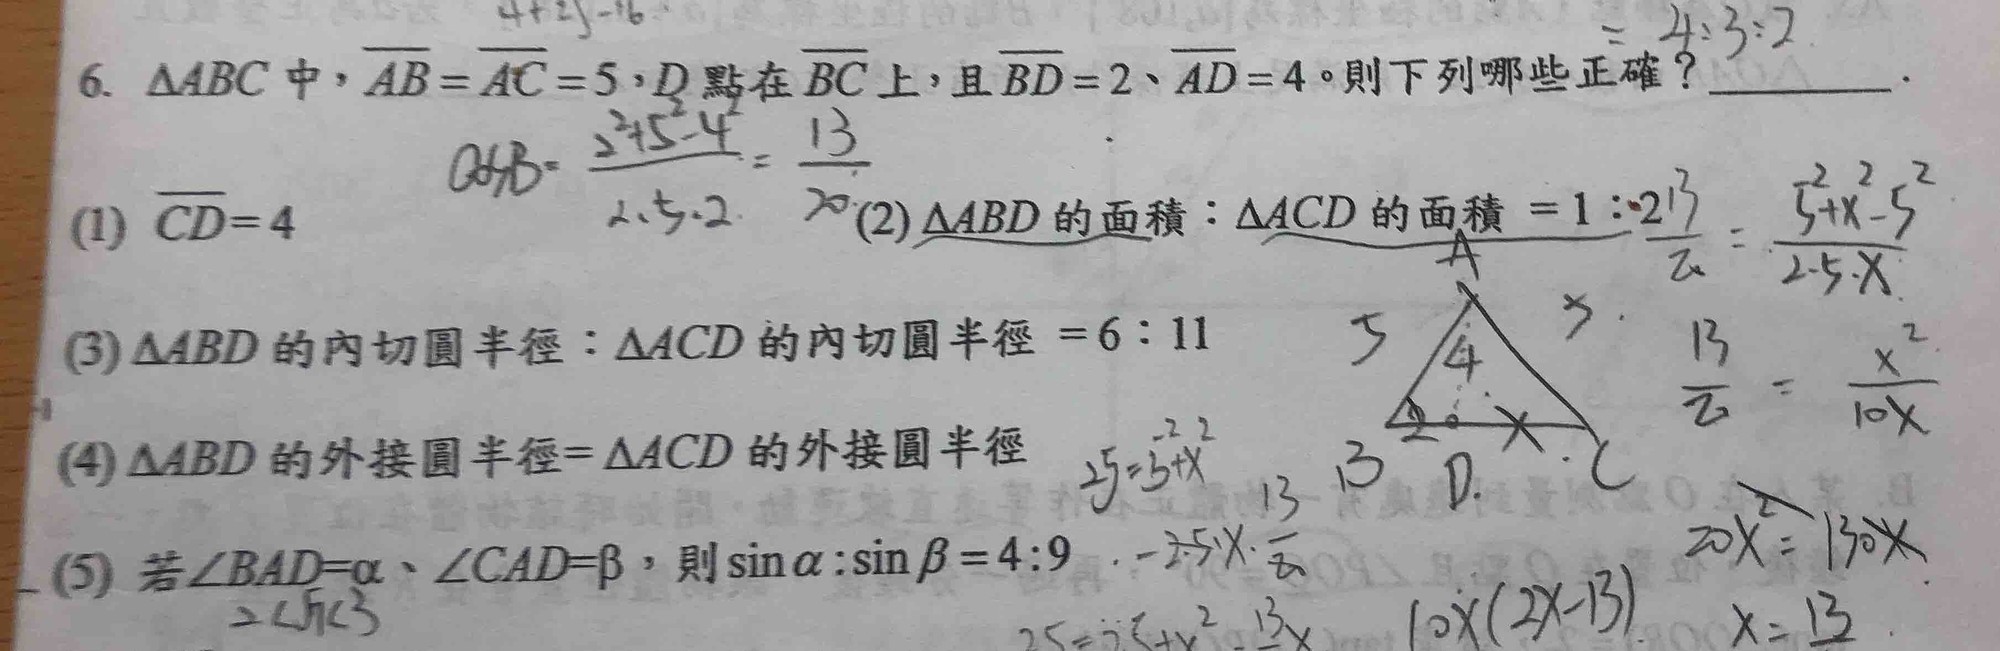 4+25-16
= 4:3:2
6. ΔABC 中，AB = AC = 5，D 點在 BC 上，且 BD = 2、AD = 4。則下列哪些正確？______.
cosB = 2²+5²-4² / 2.5.2 = 13/20
(1) CD = 4
(2) ΔABD 的面積：ΔACD 的面積 = 1：2
13/20 = 5²+x²-5² / 2.5.x
(3) ΔABD 的內切圓半徑：ΔACD 的內切圓半徑 = 6：11
A
5
4
2
x
B
D.
C
13/20 = x²/10x
(4) ΔABD 的外接圓半徑= ΔACD 的外接圓半徑
25=5²+x²
-2.5.x.13/20
20x²=130x
(5) 若∠BAD=α、∠CAD=β，則 sin α : sin β = 4:9
10x(2x-13)
x= 13